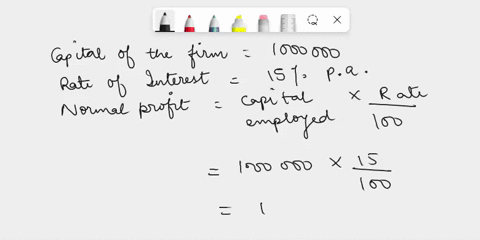 Capital of the firm = 1000000
Rate of Interest = 15% p.a.
Normal profit = Capital employed × Rate / 100
= 1000000 × 15 / 100
= 1